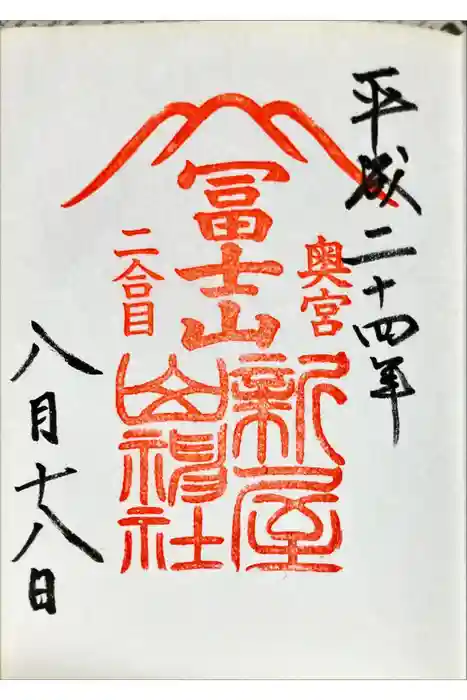 平成二十四年
奥宮
冨士山
二合目
新屋
山神社
八月十八日